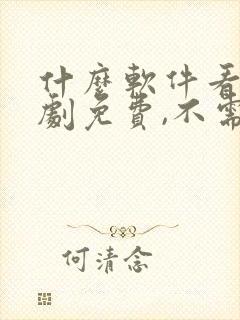 什麼軟件看
劇免費,不需
何清念